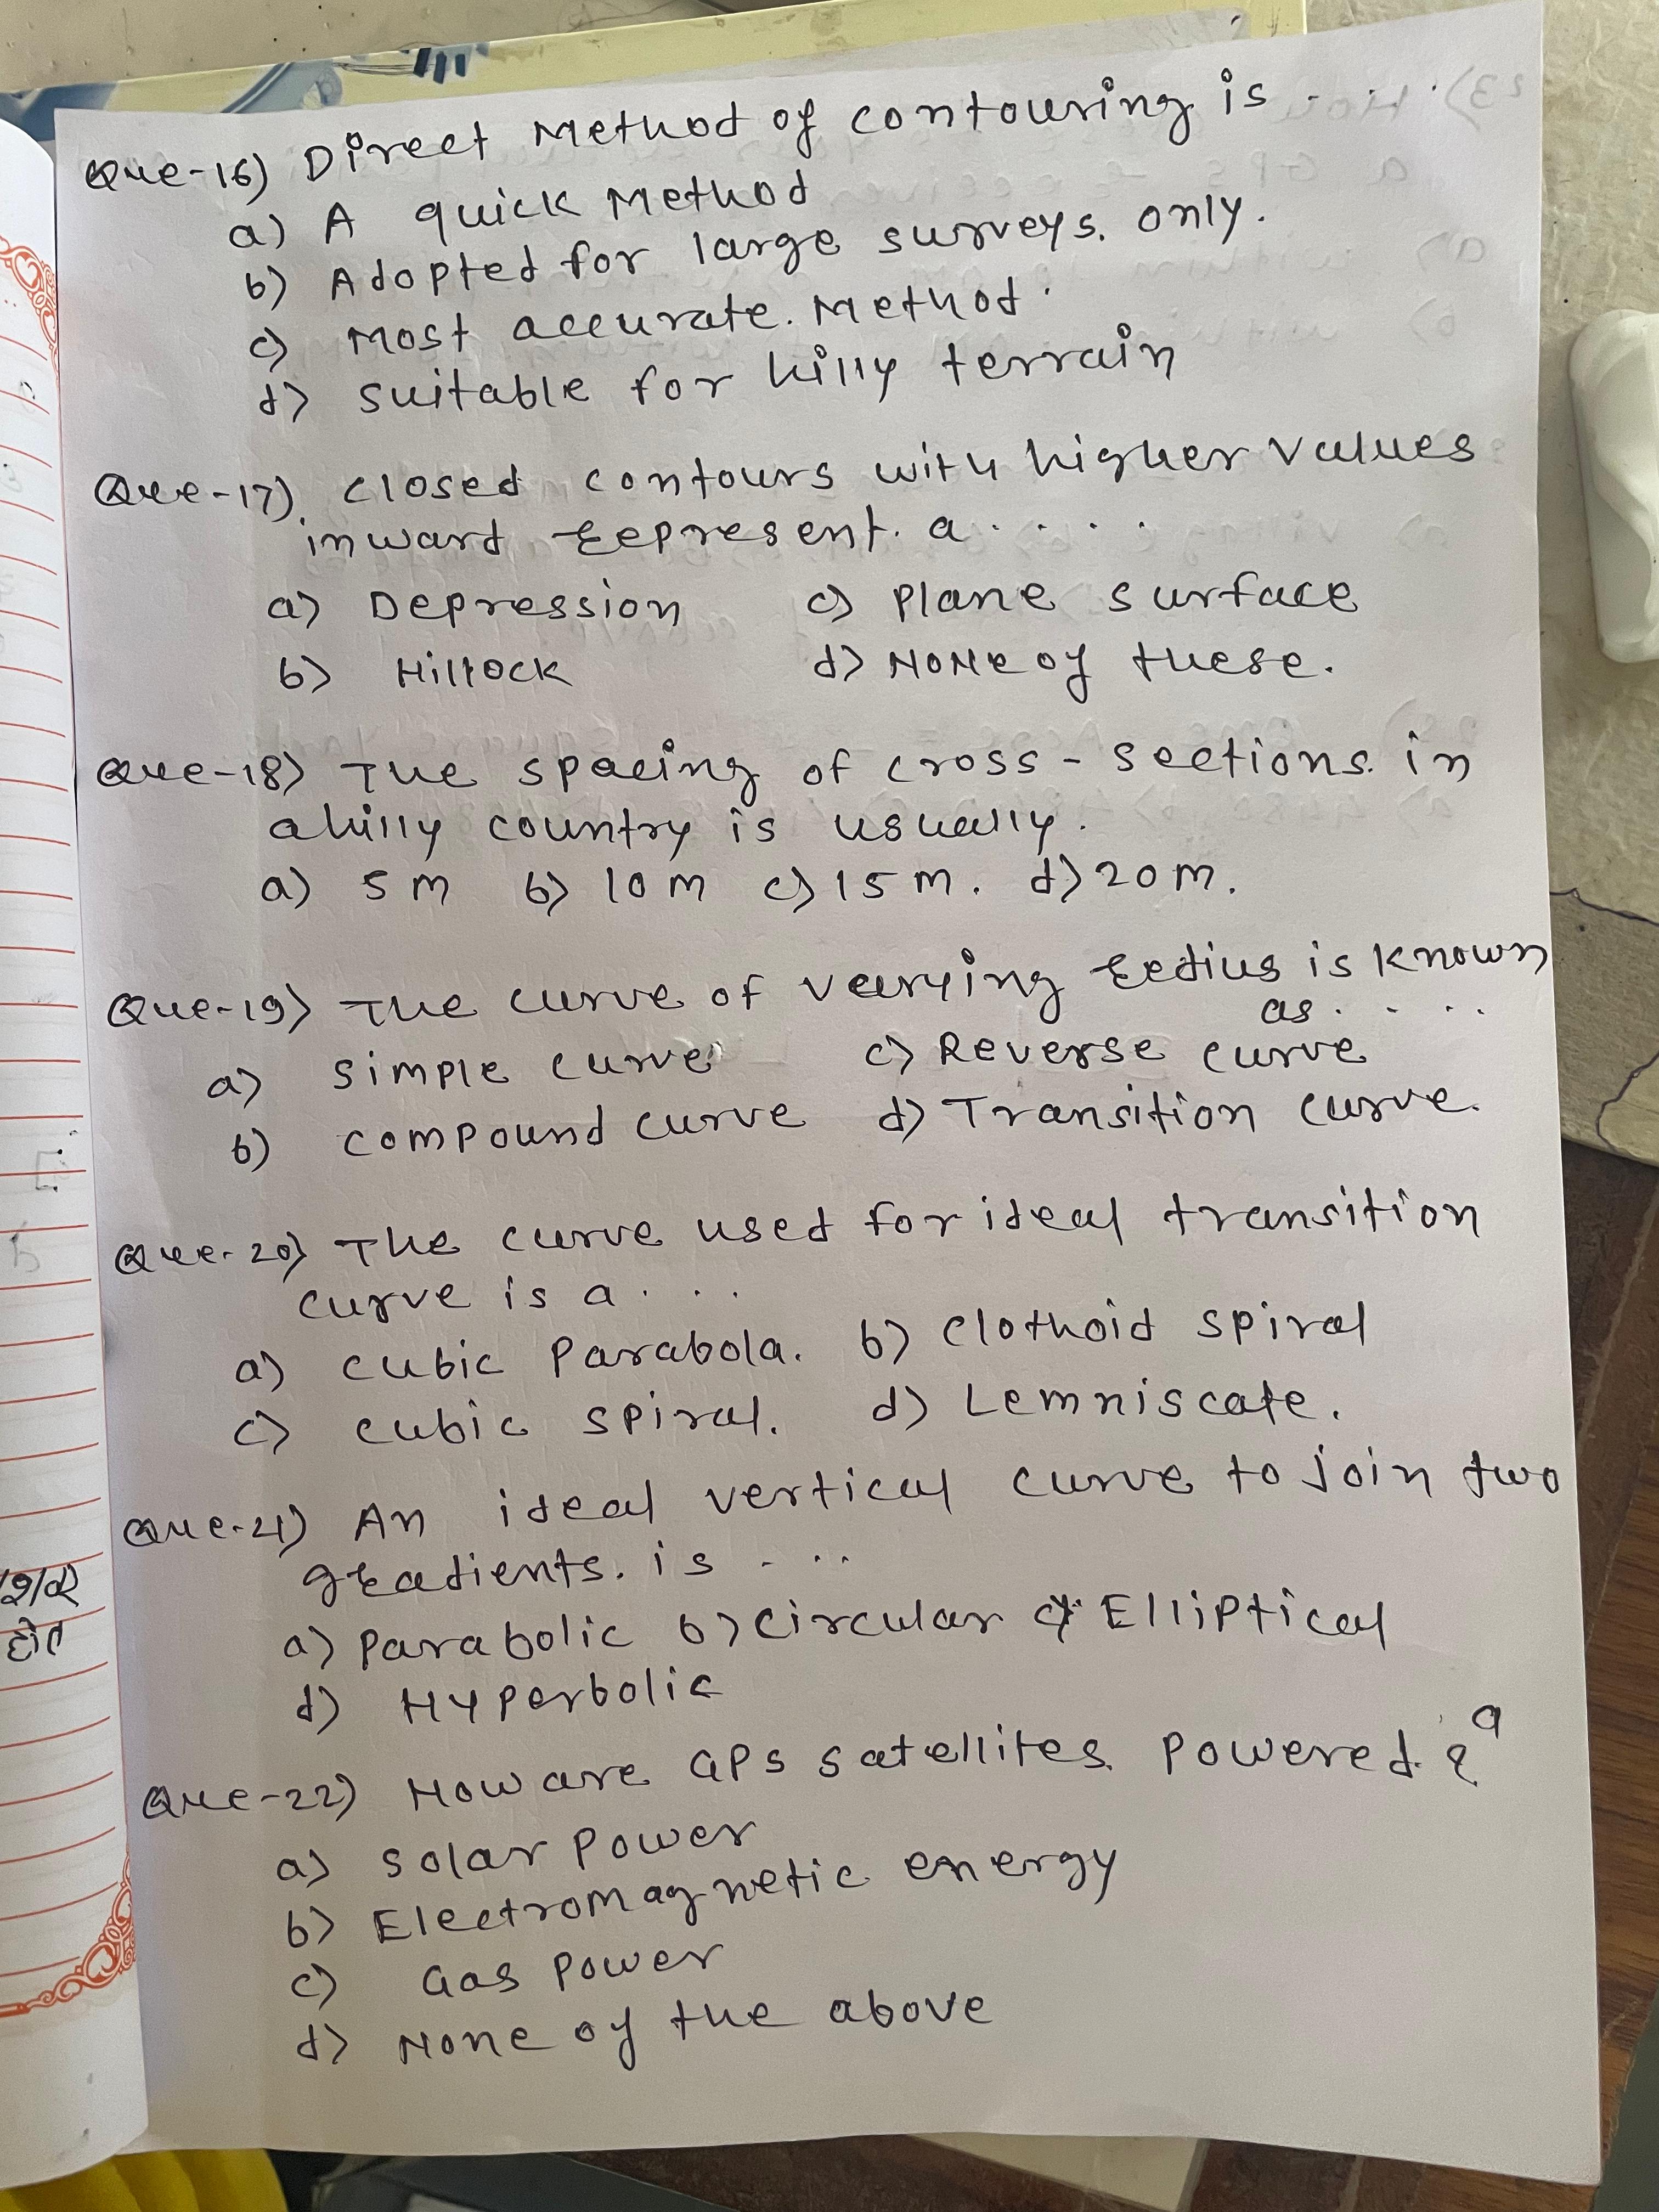 Que-16) Direct Method of contouring is ....
a) A quick Method
b) Adopted for large surveys. only.
c) Most accurate. Method.
d) suitable for hilly terrain
Que-17). closed contours with higher values
inward represent. a ....
a) Depression c) Plane surface
b) Hillock d) None of these.
Que-18) The spacing of cross-sections. in
a hilly country is usually.
a) 5 m b) 10 m c) 15 m. d) 20 m.
Que-19) The curve of varying redius is known
as ....
a) simple curve c) Reverse curve
b) compound curve d) Transition curve.
Que-20) The curve used for ideal transition
curve is a ...
a) cubic Parabola. b) clothoid spiral
c) cubic spiral. d) Lemniscate.
Que-21) An ideal vertical curve to join two
gradients. is ...
a) Parabolic b) circular c) Elliptical
d) Hyperbolic
Que-22) How are GPS satellites. Powered. ?
a) solar Power
b) Electromagnetic energy
c) Gas Power
d) None of the above